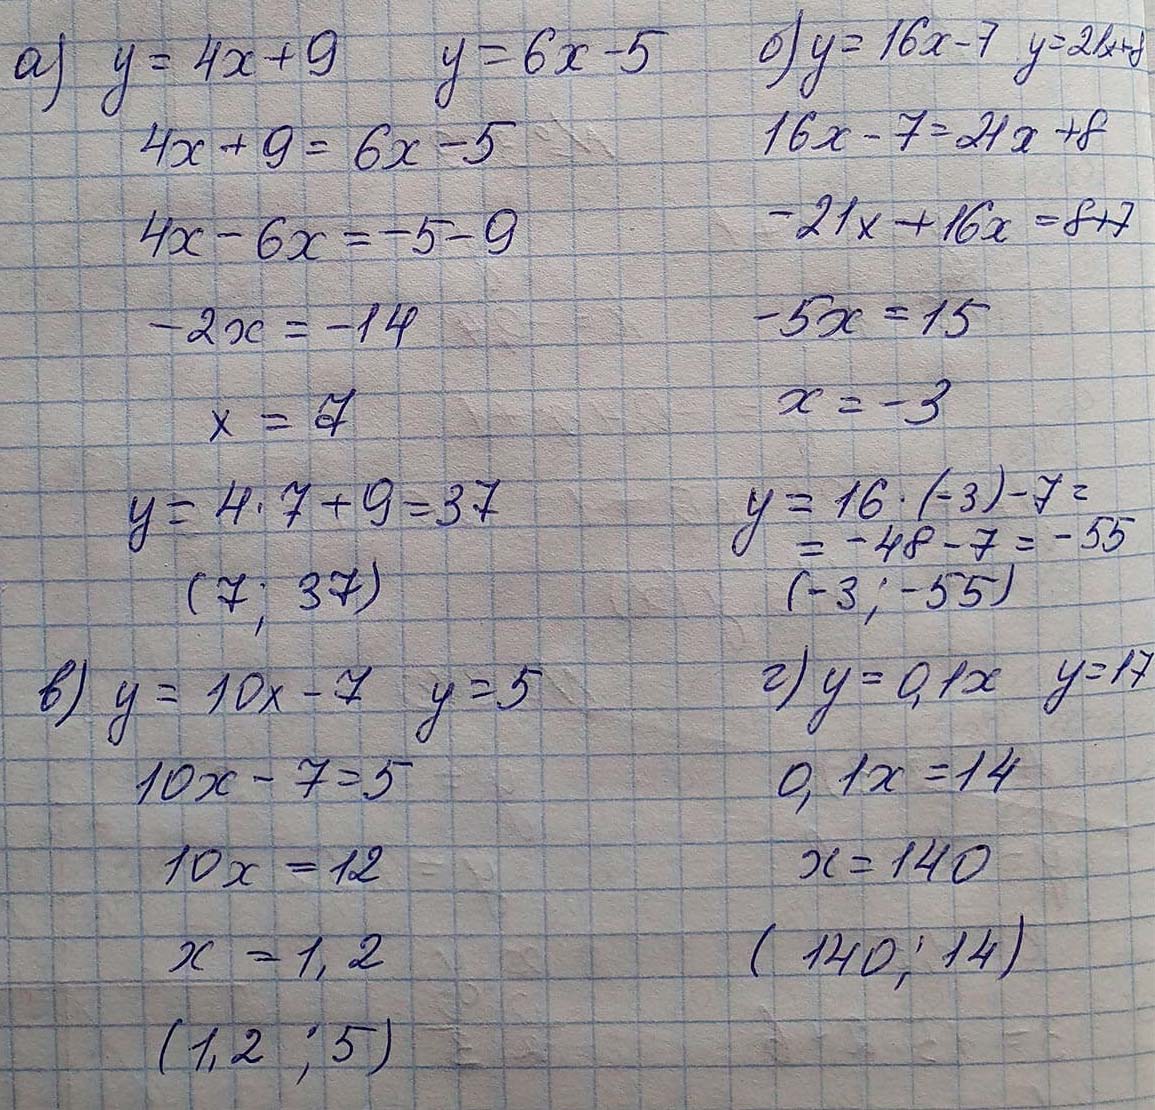 а) y = 4x + 9 y = 6x - 5
4x + 9 = 6x - 5
4x - 6x = -5 - 9
-2x = -14
x = 7
y = 4 · 7 + 9 = 37
(7; 37)
б) y = 16x - 7 y = 21x + 8
16x - 7 = 21x + 8
-21x + 16x = 8 + 7
-5x = 15
x = -3
y = 16 · (-3) - 7 =
= -48 - 7 = -55
(-3; -55)
в) y = 10x - 7 y = 5
10x - 7 = 5
10x = 12
x = 1,2
(1,2 ; 5)
г) y = 0,1x y = 17
0,1x = 14
x = 140
(140; 14)